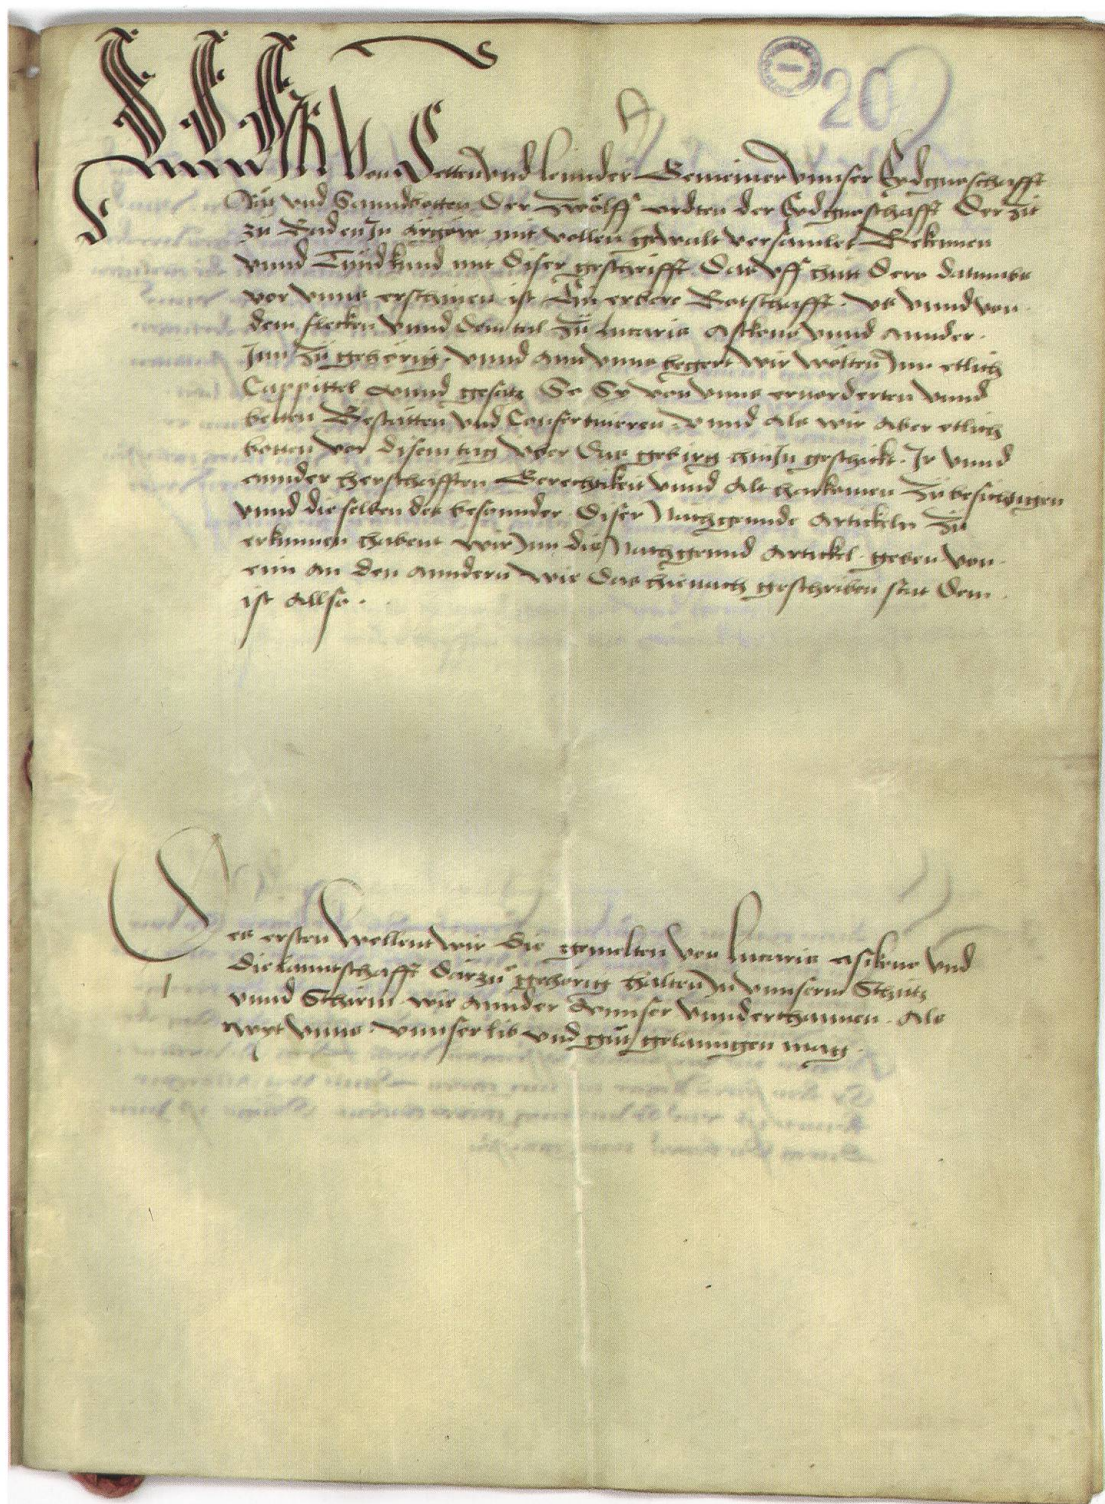 20
Wir Von Stetten und lennder Gemeiner unnser Eydgnoschafft
Rät und Sanndbotten Der Zwölff ordten der Eydgnoschafft Der Zit
zu Baden Jn Ärgöw mit vollen gewalt versamlet Bekennen
unnd Tund kund mit Diser geschrifft Das uff hütt Dero datumbs
vor unns erschinen ist Ein erbere Botschafft us unnd von
dem flecken unnd Dem tal Zů Lucaris Askone unnd annder
Jnn Zů gehörig unnd ann unns begert wir wolten Jnn etlich
Cappittel unnd gesatz So Sy von unns ervorderten unnd
betten Bestätten und Confermieren unnd Als wir Aber etlich
botten vor Disem tag über Das gebirg hin Jn geschickt Jr unnd
annder herschafften Gerechtikeit unnd Alt harkomen Zů besichtigen
unnd dieselben des besonnder Diser Nachgennde Artickeln Zů
erkunnen habent wir Jnn die Nachgennd Artickel geben von
eim An den anndern wie Das hienach geschriben stat Dem
ist Allso
Des ersten Wellent wir Die gemelten von Lucaris Askone und
Die lanntschafft Darzů gehörig halten Jn unnserm Schutz
unnd Schirm wie annder unnser unnderthannen Als
wyt unns unnser lib und gůt gelanngen mag
1